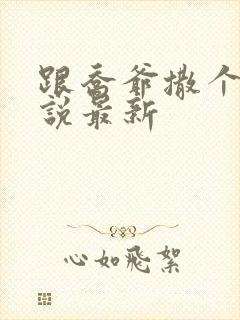 跟乔爷撒个
說最新
心如飛絮